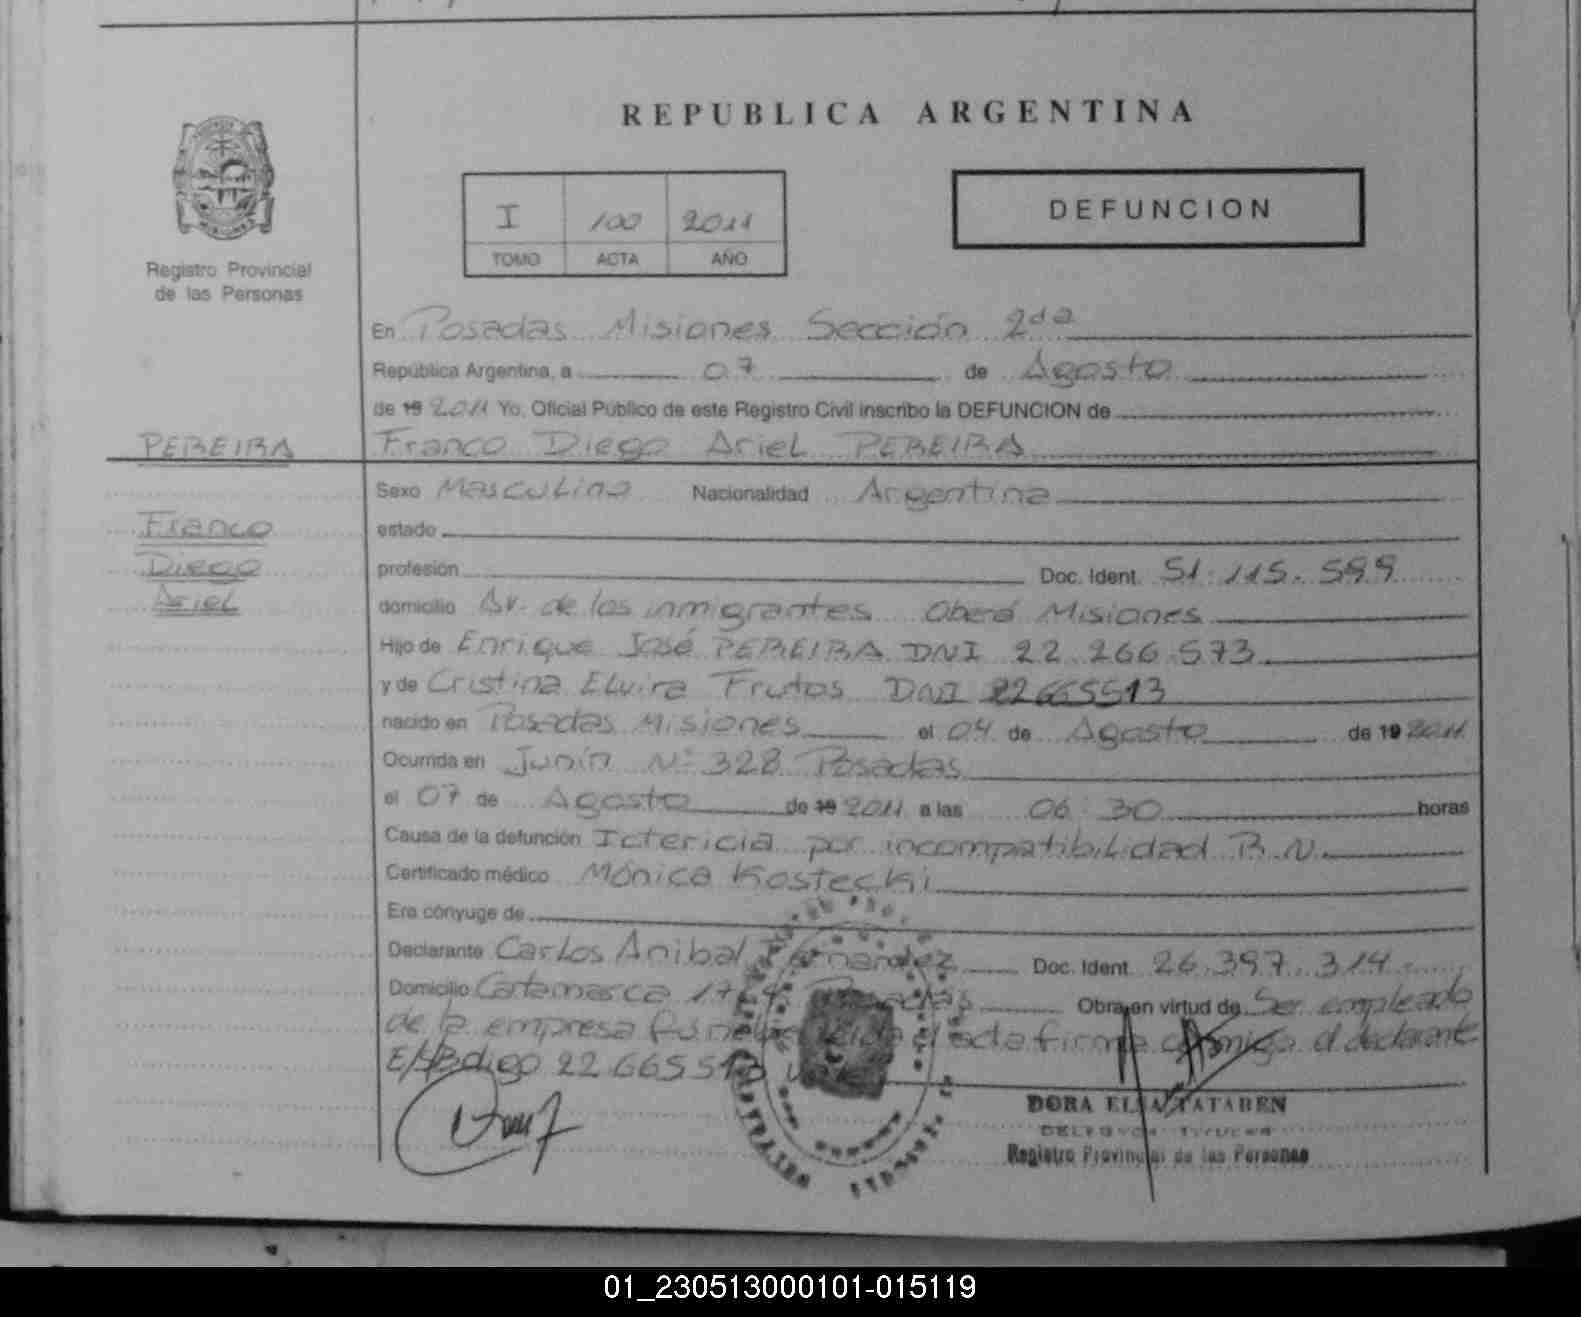 REPUBLICA ARGENTINA
I 100 2011
TOMO ACTA AÑO
DEFUNCION
Registro Provincial
de las Personas
En Posadas Misiones Sección 2da
República Argentina, a 07 de Agosto
de 19 2011 Yo, Oficial Público de este Registro Civil inscribo la DEFUNCION de
PEREIRA
Franco Diego Ariel PEREIRA
Franco
Diego
Ariel
Sexo Masculino Nacionalidad Argentina
estado
profesión Doc. Ident. 51.115.599
domicilio Av. de los inmigrantes Oberá Misiones
Hijo de Enrique José PEREIRA DNI 22.266.573
y de Cristina Elvira Frutos DNI 22665513
nacido en Posadas Misiones el 04 de Agosto de 19 2011
Ocurrida en Junín Nº 328 Posadas
el 07 de Agosto de 19 2011 a las 06:30 horas
Causa de la defunción Ictericia por incompatibilidad R.N.
Certificado médico Mónica Kostecki
Era cónyuge de
Declarante Carlos Anibal Fernandez Doc. Ident. 26.397.314
Domicilio Catamarca Posadas Obra en virtud de Ser empleado
de la empresa acta firma conmigo el declarante
22.665.513
DORA ELSA TATAREN
Registro Provincial de las Personas
01_230513000101-015119